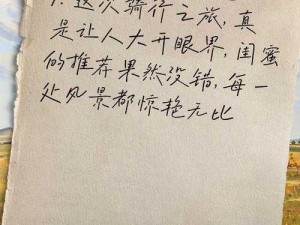 1. 这次骑行之旅，真
是让人大开眼界，闺蜜
的推荐果然没错，每一
处风景都惊艳无比